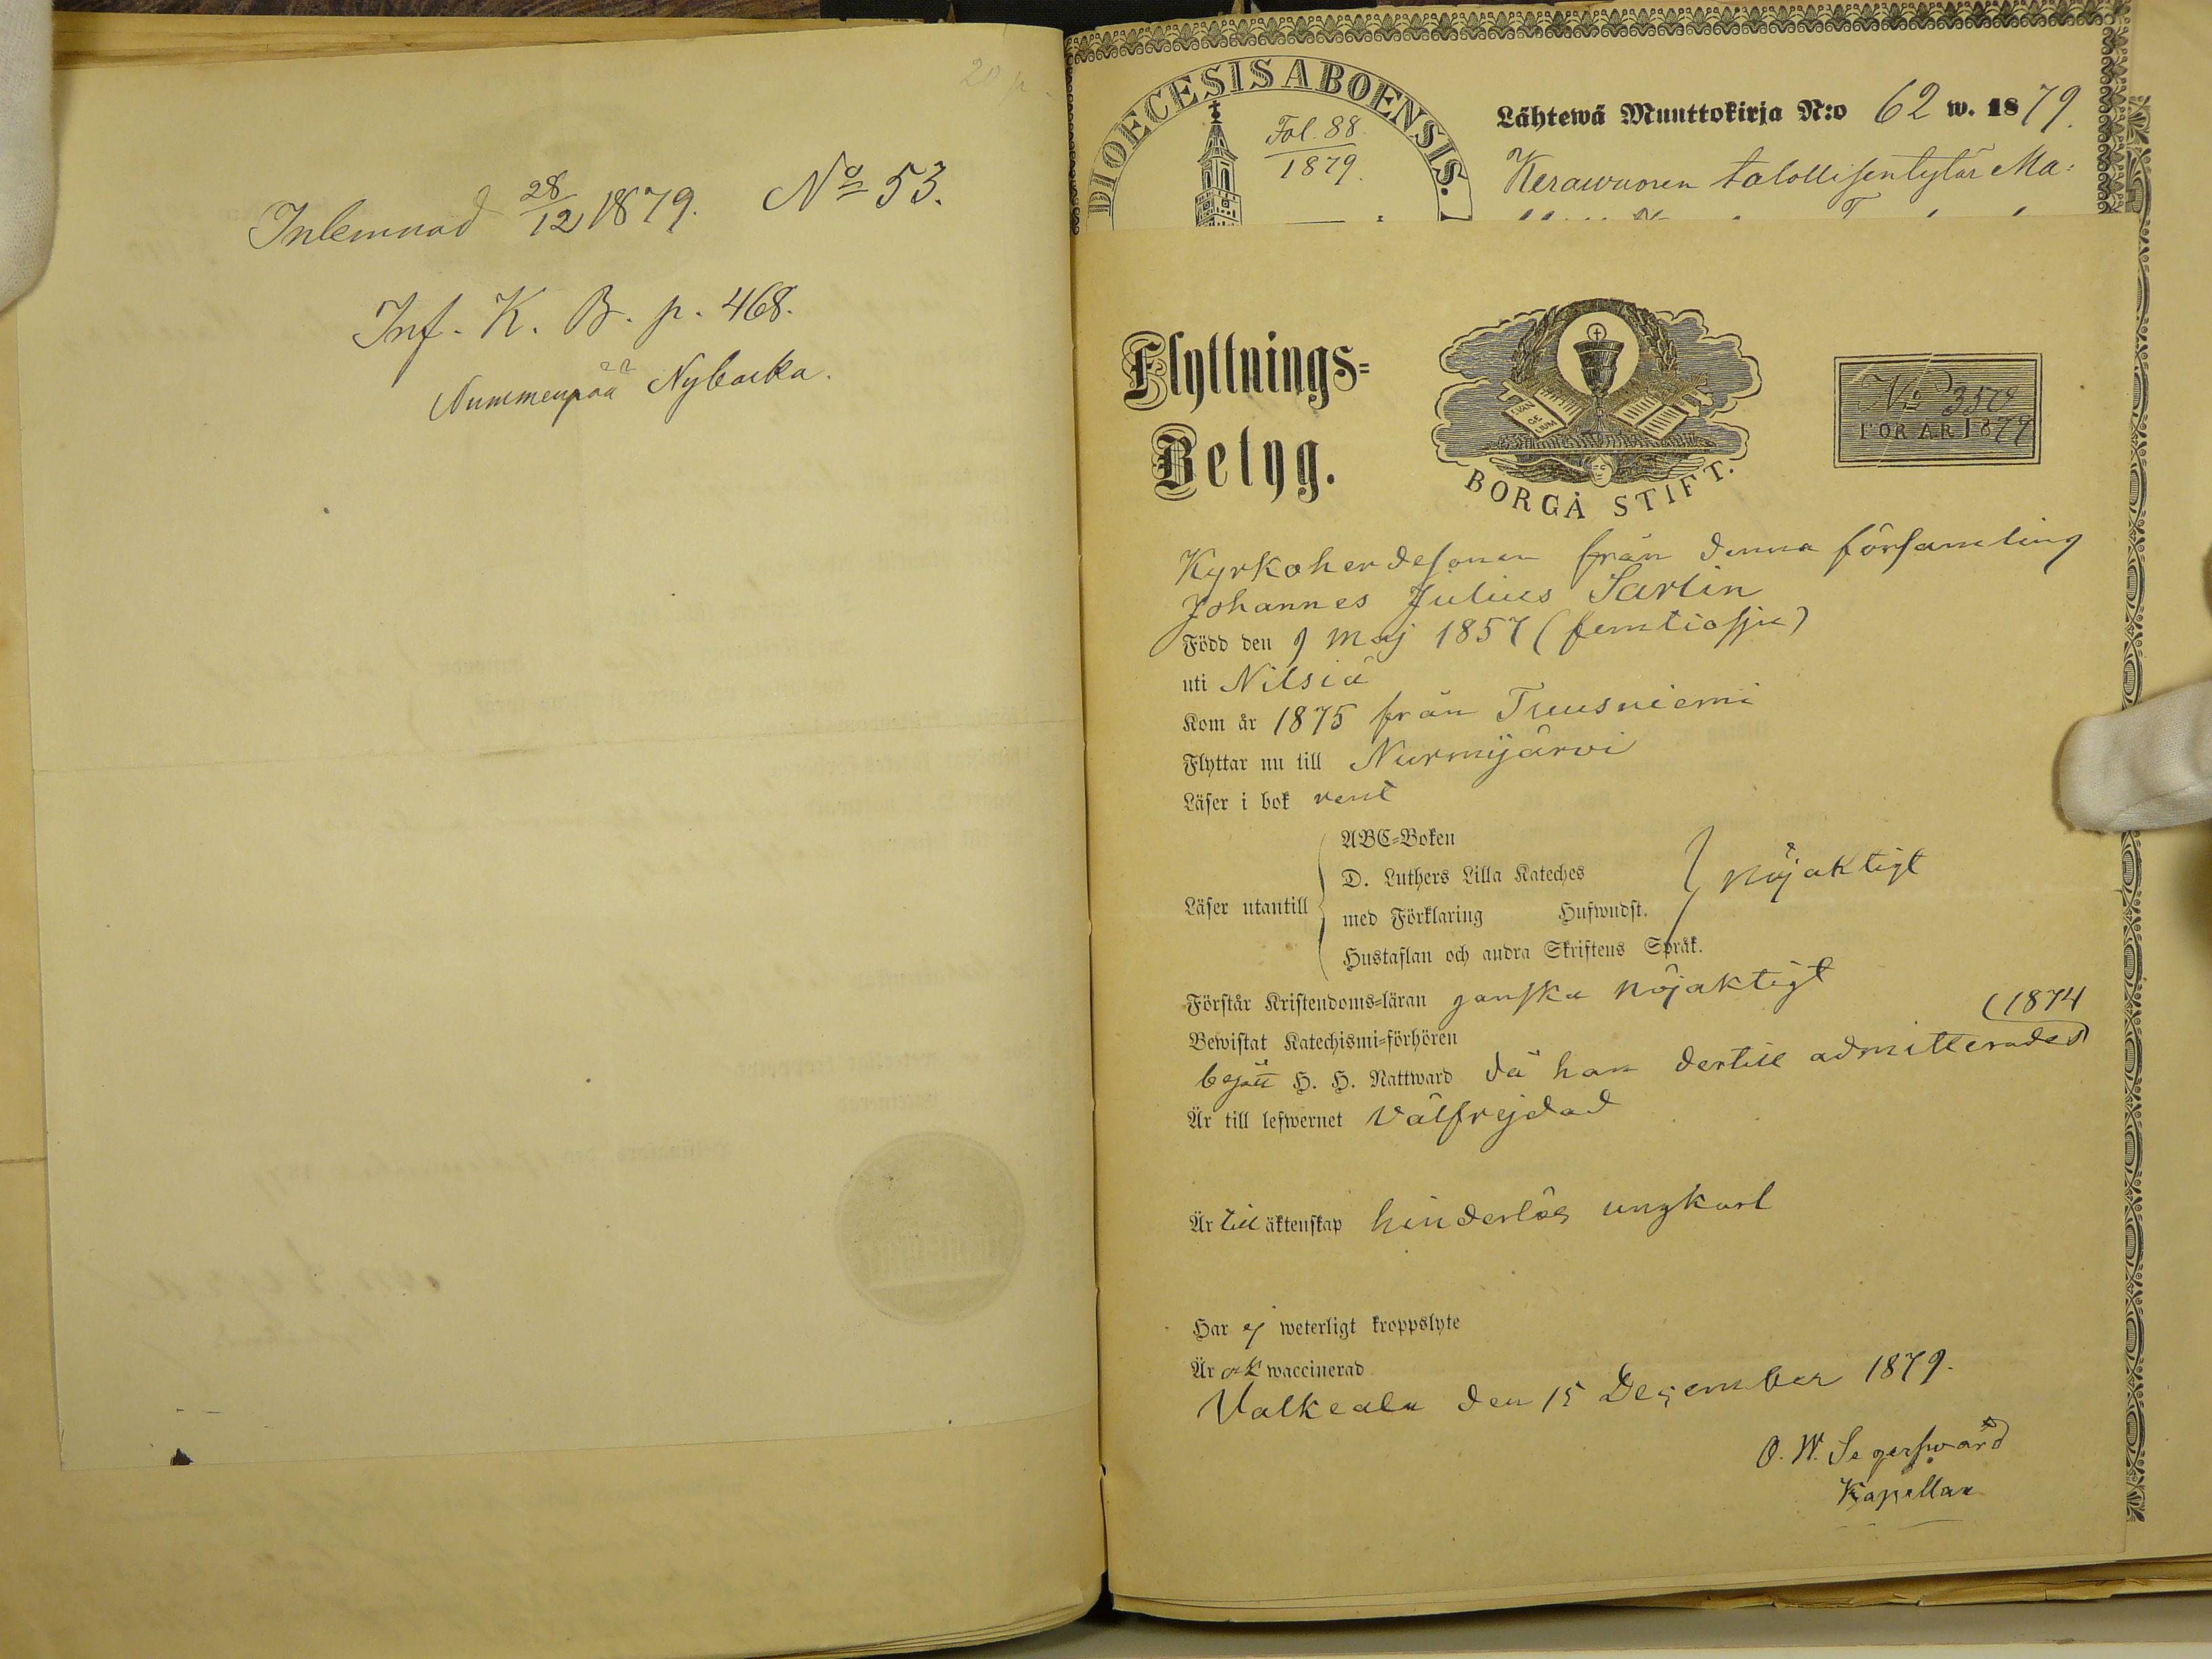 Inlemnad 28/12 1879. No 53.
Inf. K. B. p. 468.
Nummenpää Nybacka.
DIOECESIS ABOENSIS.
Fol. 88.
1879.
Lähtewä Muuttokirja N:o 62 w. 1879.
Kerawuoren talollisentytär Ma:
Flyttnings-
Betyg.
EVAN
GE
LIUM
BORGÅ STIFT.
No 3579
FÖR ÅR 1879
Kyrkoherdesonen från denna församling
Johannes Julius Sarlin
Född den 9 Maj 1857 (femtiosju)
uti Nilsiä
Kom år 1875 från Tuusniemi
Flyttar nu till Nurmijärwi
Läser i bok rent
ABC-Boken
D. Luthers Lilla Kateches
Läser utantill
med Förklaring Hufwudst.
nöjaktigt
Hustaflan och andra Skriftens Språk.
Förstår Kristendoms-läran ganska nöjaktigt
Bewistat Katechismi-förhören
(1874
begått H. H. Nattward då han dertill admitterades
Är till lefwernet Välfrejdad
Är till äktenskap hinderlös ungkarl
Har ej weterligt kroppslyte
Är ok waccinerad
Valkeala den 15 December 1879.
O. W. Segerswärd
Kapellan